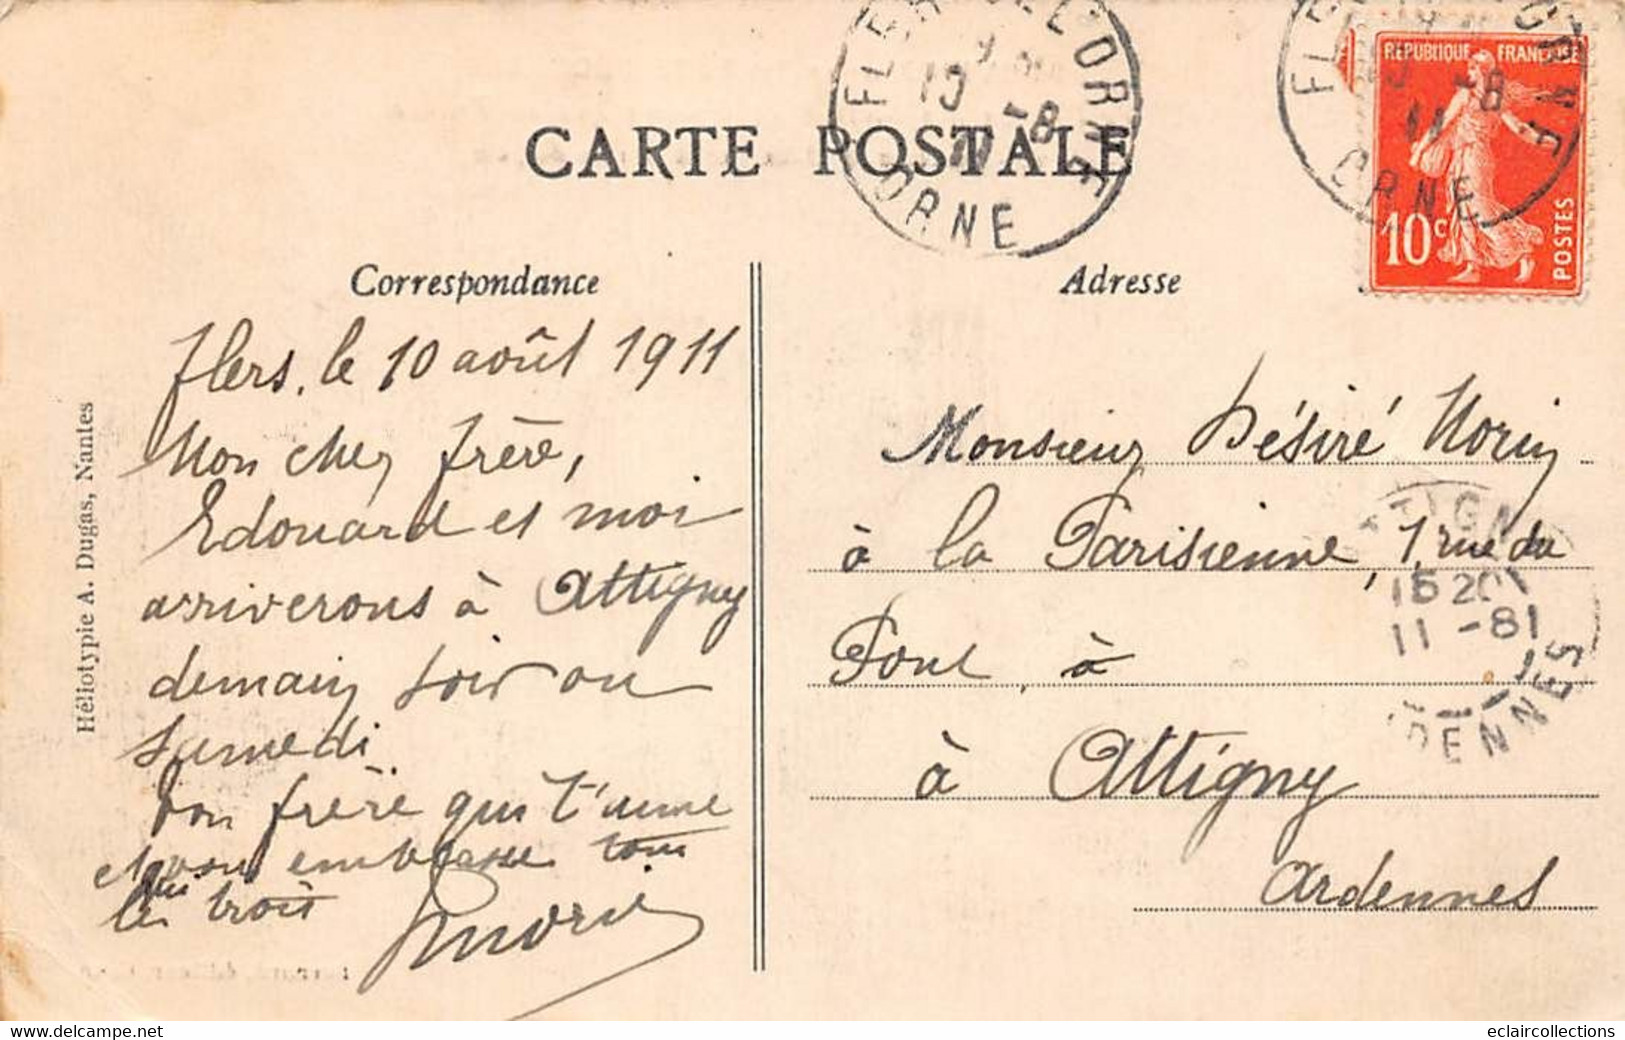 CARTE POSTALE
FLERS DE L'ORNE
10 -8
11
ORNE
FLE
10 -8
11
ORNE
RÉPUBLIQUE FRANÇAISE
10c
POSTES
Correspondance
Flers, le 10 août 1911
Mon cher frère,
Edouard et moi
arriverons à Attigny
demain soir ou
samedi.
Ton frère qui t'aime
et vous embrasse tous
les trois
Morin
Héliotypie A. Dugas, Nantes
Adresse
Monsieur Désiré Morin
à la Parisienne, 1 rue du
Pont, à
à Attigny
Ardennes
ATTIGNY
15 20
11 -8 1
ARDENNES
éditeur
www.delcampe.net
eclaircollections